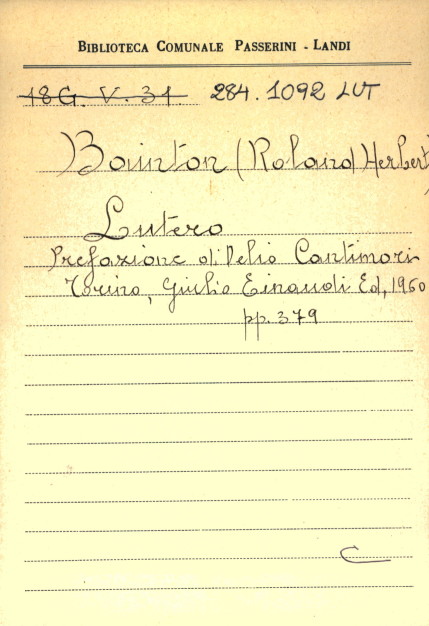 BIBLIOTECA COMUNALE PASSERINI - LANDI
18G. V. 31. 284.1092 LUT
Bainton (Roland Herbert)
Lutero
Prefazione di Delio Cantimori
Torino, Giulio Einaudi Ed, 1960
pp. 379
C